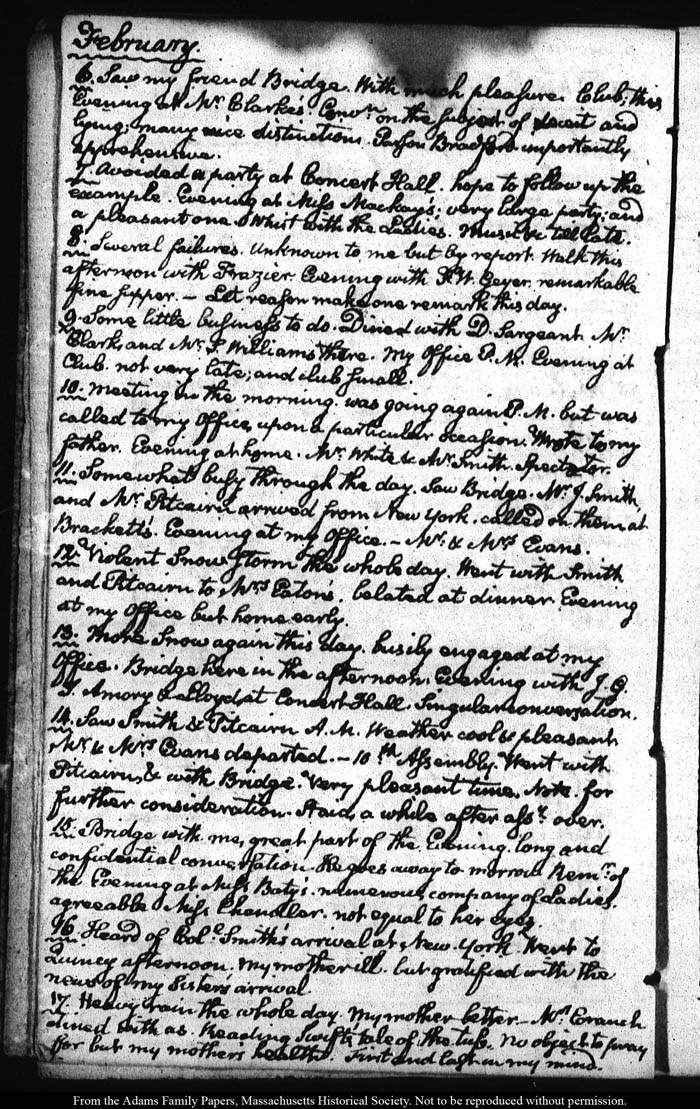 February.
6. Saw my friend Bridge. With much pleasure. Club; this
Evening at Mr. Clarke's. Convn. on the subject of deceit and
lying; many nice distinctions. Parson Bradford importantly
apprehensive.
7. Avoided a party at Concert Hall. hope to follow up the
example. Evening at Miss Mackay's; very large party; and
a pleasant one. Whist with the Ladies. Musick till late.
8. Several failures. unknown to me but by report. Walk this
afternoon with Frazier. Evening with F. W. Geyer. remarkable
fine supper. — Let reason make one remark this day.
9. Some little business to do. Dined with D. Sargeant. Mr.
Clark, and Mr. Williams there. My Office P.M. Evening at
Club. not very late; and club small.
10. Meeting in the morning. was going again P.M. but was
called to my Office, upon a particular occasion. Wrote to my
father. Evening at home. Mr. White & Mr. Smith. Spectator.
11. Somewhat busy through the day. Saw Bridge. Mr. J. Smith,
and Mr. Pitcairn arrived from New York. called on them at
Brackett's. Evening at my Office. — Mr. & Mrs. Evans.
12. Violent Snow storm the whole day. Went with Smith
and Pitcairn to Mrs. Eaton's. belated at dinner. Evening
at my Office but home early.
13. More Snow again this day. busily engaged at my
Office. Bridge here in the afternoon. Evening with J. G.
Amory & Lloyd at Concert Hall. Singular conversation.
14. Saw Smith & Pitcairn A.M. Weather cool & pleasant
Mr. & Mrs. Evans departed. — 10th. Assembly. Went with
Pitcairn, & with Bridge. Very pleasant time. Note. for
further consideration. Staid a while after assy. over.
15. Bridge with me, great part of the Evening. long and
confidential conversation. He goes away to morrow. Remr. of
the Evening at Miss Baty's. numerous company of Ladies.
agreeable Miss Chandler. not equal to her eyes.
16. Heard of Coll. Smith's arrival at New-York. Went to
Quincy afternoon. My mother ill. but gratified with the
news of my Sisters arrival.
17. Heavy rain the whole day. My mother better. — Mrs. Cranch
dined with us. Reading Swift's tale of the tub. No object to pray
for but my mothers health. First and last in my mind.
From the Adams Family Papers, Massachusetts Historical Society. Not to be reproduced without permission.